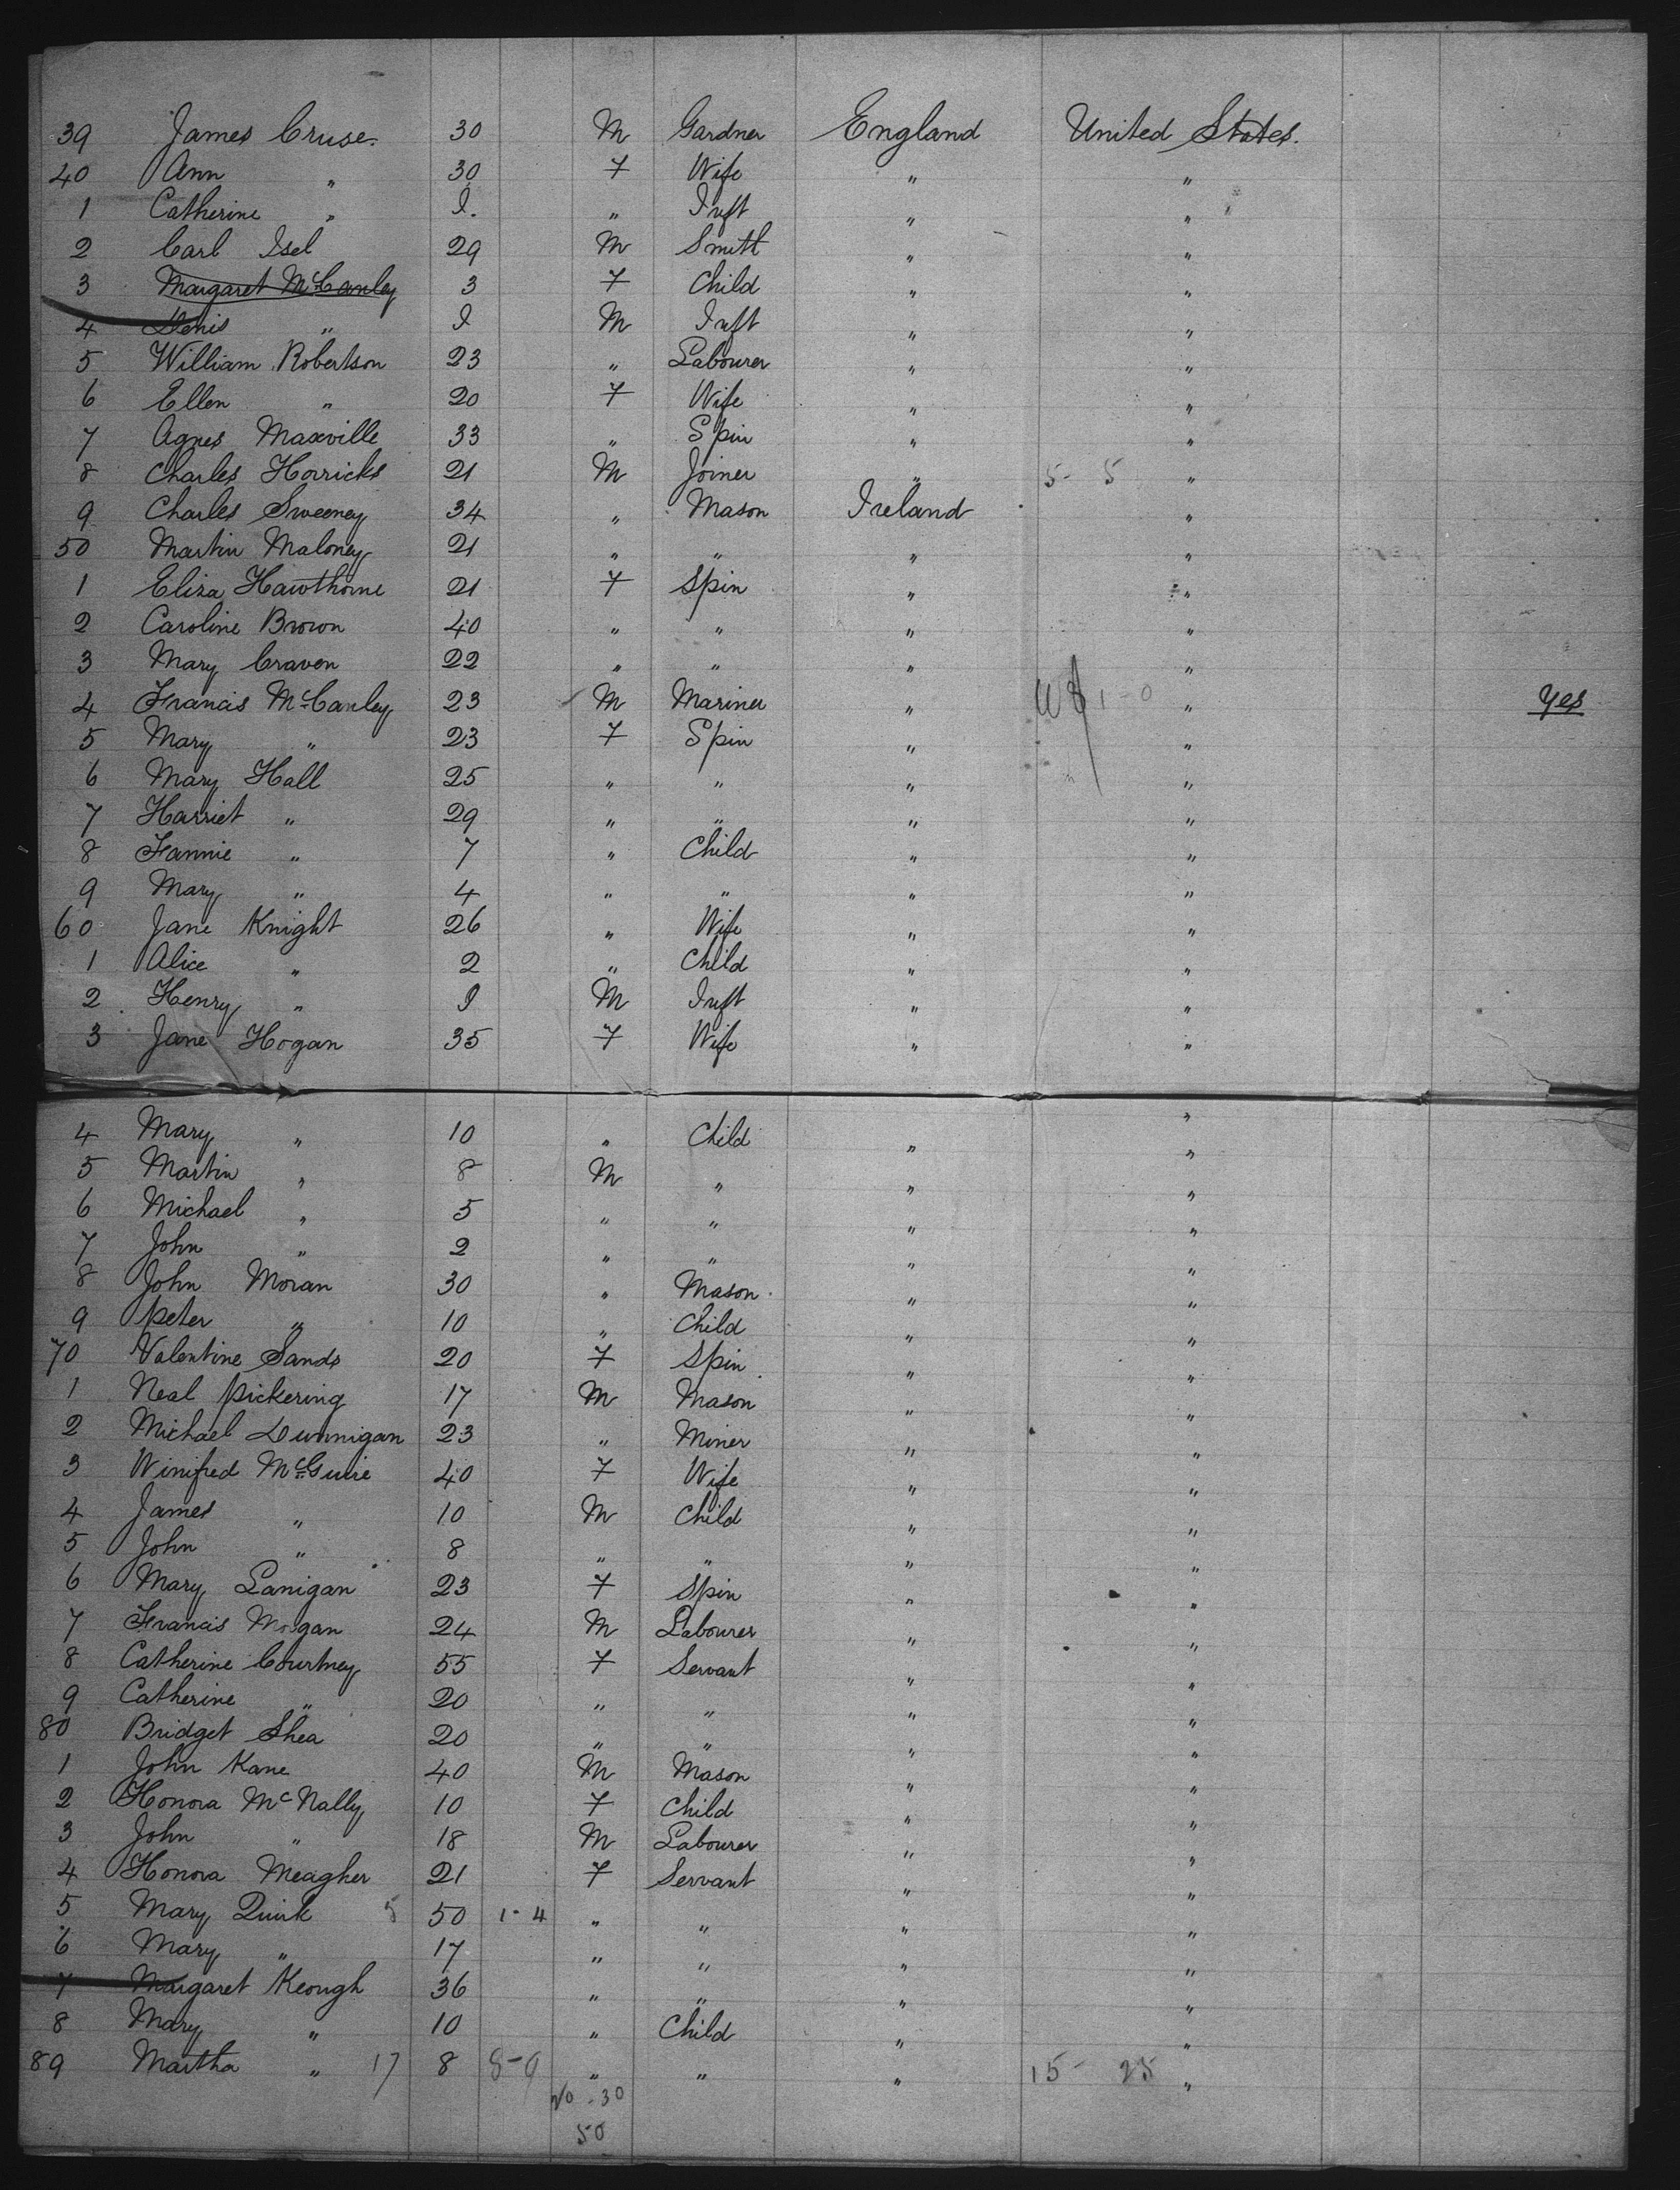 39 James Cruse. 30 M Gardner England United States.
40 Ann " 30 F Wife " "
1 Catherine " I. " Inft " "
2 Carl Isel 29 M Smith " "
3 Margaret McCauley 3 F Child " "
4 Denis " I M Inft " "
5 William Robertson 23 " Labourer " "
6 Ellen " 20 F Wife " "
7 Agnes Maxville 33 " Spin " "
8 Charles Horricks 21 M Joiner " 5- 5 "
9 Charles Sweeney 34 " Mason Ireland "
50 Martin Maloney 21 " " " "
1 Eliza Hawthorne 21 F Spin " "
2 Caroline Brown 40 " " " "
3 Mary Craven 22 " " " "
4 Francis McCauley 23 M Mariner " 1-0 " Yes
5 Mary " 23 F Spin " "
6 Mary Hall 25 " " " "
7 Harriet " 29 " " " "
8 Fannie " 7 " Child " "
9 Mary " 4 " " " "
60 Jane Knight 26 " Wife " "
1 Alice " 2 " Child " "
2 Henry " I M Inft " "
3 Jane Hogan 35 F Wife " "
4 Mary " 10 " Child " "
5 Martin " 8 M " " "
6 Michael " 5 " " " "
7 John " 2 " " " "
8 John Moran 30 " Mason " "
9 Peter " 10 " Child " "
70 Valentine Sands 20 F Spin " "
1 Neal Pickering 17 M Mason " "
2 Michael Dunnigan 23 " Miner " "
3 Winifred McGuire 40 F Wife " "
4 James " 10 M Child " "
5 John " 8 " " " "
6 Mary Lanigan 23 F Spin " "
7 Francis Morgan 24 M Labourer " "
8 Catherine Courtney 55 F Servant " "
9 Catherine " 20 " " " "
80 Bridget Shea 20 " " " "
1 John Kane 40 M Mason " "
2 Honora McNally 10 F Child " "
3 John " 18 M Labourer " "
4 Honora Meagher 21 F Servant " "
5 Mary Quirk 5 50 1-4 " " " "
6 Mary " 17 " " " "
7 Margaret Keough 36 " " " "
8 Mary " 10 " Child " "
89 Martha " 17 8 8-9 " " " 15- 25 "
20-30
50